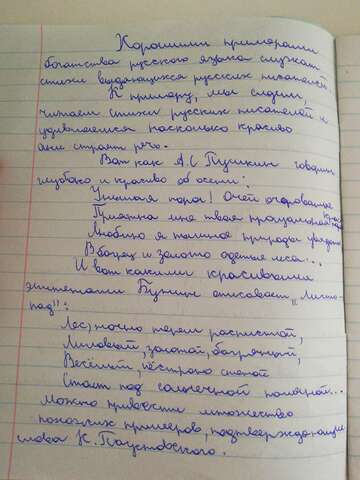 Хорошими примерами
богатства русского языка служат
стихи выдающихся русских писателей.
К примеру, мы сидим,
читаем стихи русских писателей и
удивляемся насколько красиво
они строят речь.
Вот как А.С Пушкин говорит
глубоко и красиво об осени:
Унылая пора! Очей очарованье
Приятна мне твоя прощальная краса
Люблю я пышное природы увяданье
В багрец и золото одетые леса...
И вот какими красивыми
эпитетами Бунин описывает „Листо-
пад":
Лес, точно терем расписной,
Лиловый, золотой, багряный,
Весёлой, пёстрою стеной
Стоит под солнечной поляной...
Можно привести множество
похожих примеров, подтверждающие
слова К. Паустовского.